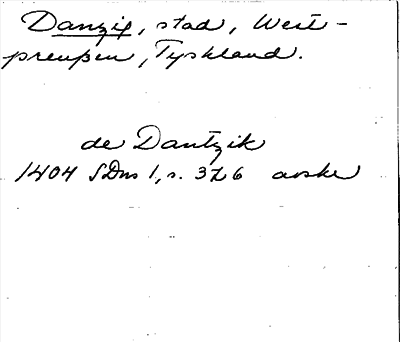 Danzig, stad, West-
preußen, Tyskland.
de Dantzik
1404 SDns 1, s. 376 avskr